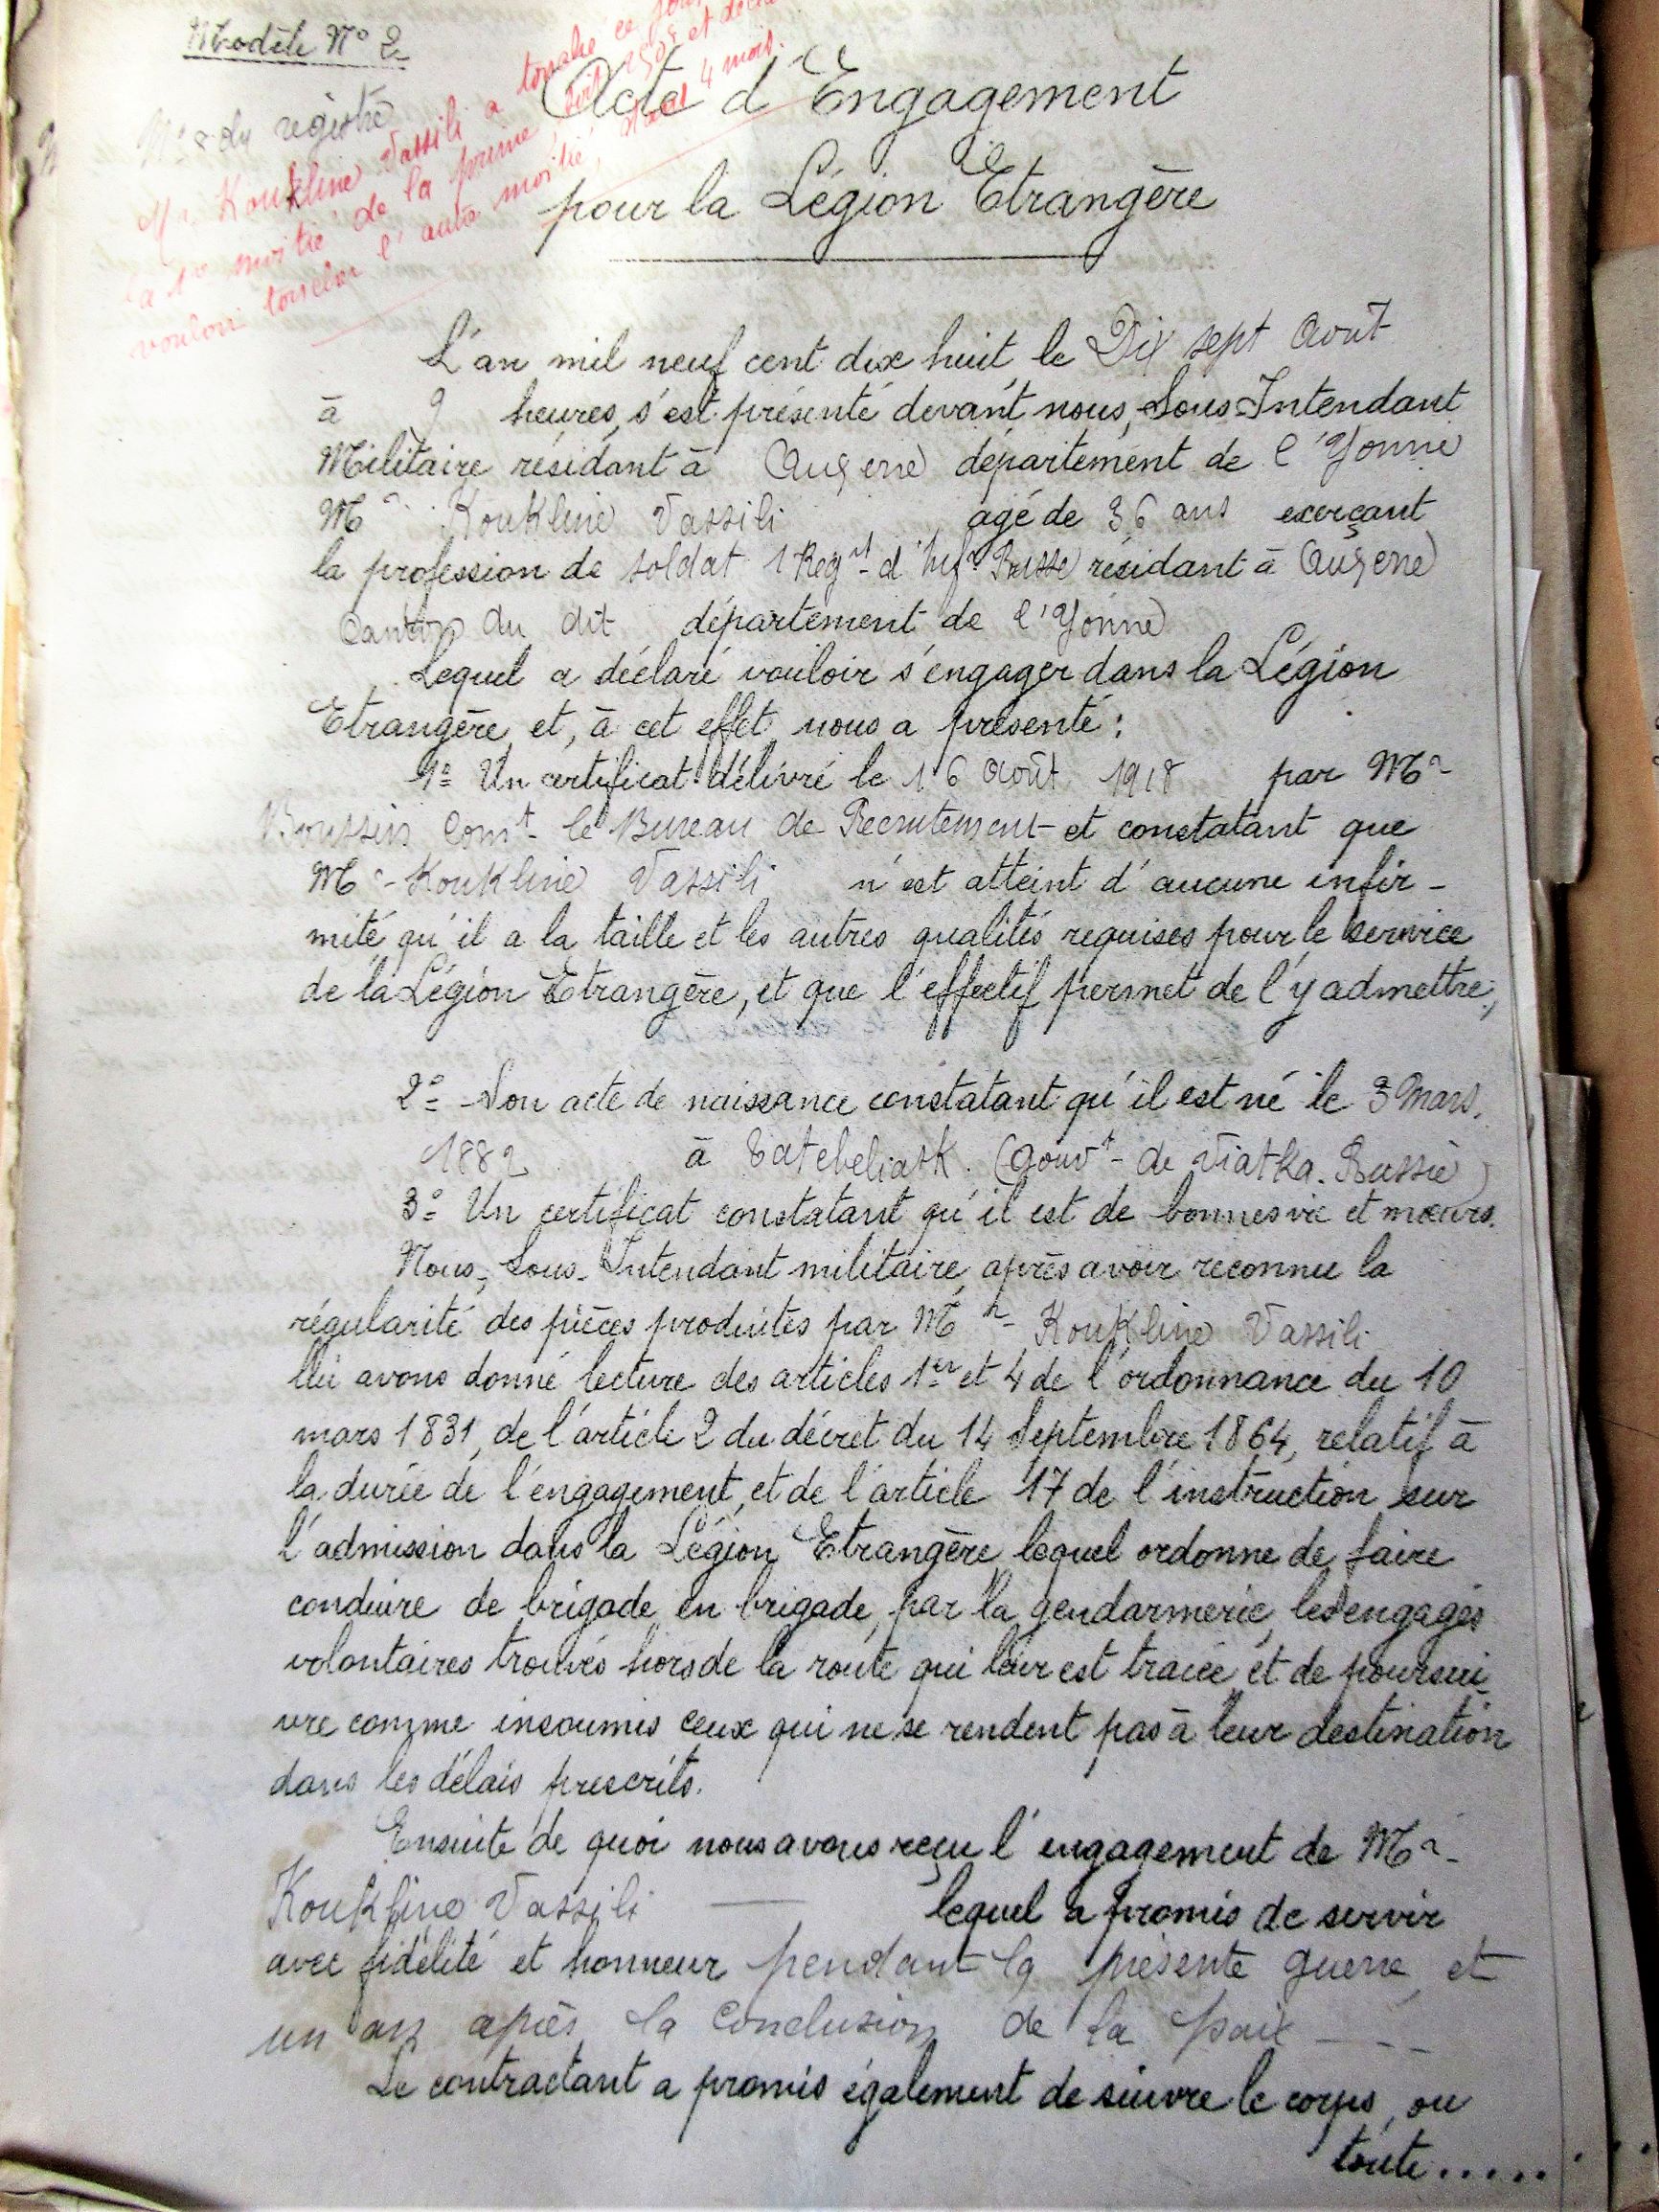 Modèle N° 2
N° 8 du registre
Mr. Koukline Vassili a touché ce
la 1e moitié de la prime, soit 250f et
vouloir toucher l'autre moitié, dans 4 mois.
Acte d'Engagement
pour la Légion Etrangère
L'an mil neuf cent dix huit le Dix sept Août
à 9 heures, s'est présenté devant nous, Sous-Intendant
Militaire résidant à Auxerre département de l'Yonne
Mr. Koukline Vassili agé de 36 ans exerçant
la profession de soldat 1 Regnt d'Infie Russe résidant à Auxerre
Canton du dit département de l'Yonne
Lequel a déclaré vouloir s'engager dans la Légion
Etrangère, et, à cet effet, nous a présenté:
1° Un certificat délivré le 16 Août 1918 par Mr
Boussin Comt le Bureau de Recrutement et constatant que
Mr Koukline Vassili n'est atteint d'aucune infir-
mité, qu'il a la taille et les autres qualités requises pour le service
de la Légion Etrangère, et que l'effectif permet de l'y admettre;
2° Son acte de naissance constatant qu'il est né le 3 Mars
1882 à (Gouvt de Viatka. Russie)
3° Un certificat constatant qu'il est de bonnes vie et mœurs.
Nous, Sous-Intendant militaire, après avoir reconnu la
régularité des pièces produites par Mr Koukline Vassili
lui avons donné lecture des articles 1er et 4 de l'ordonnance du 10
mars 1831, de l'article 2 du décret du 14 Septembre 1864, relatif à
la durée de l'engagement, et de l'article 17 de l'instruction sur
l'admission dans la Légion Etrangère, lequel ordonne de faire
conduire de brigade en brigade, par la gendarmerie, les engagés
volontaires trouvés hors de la route qui leur est tracée et de poursui-
vre comme insoumis ceux qui ne se rendent pas à leur destination
dans les délais prescrits.
Ensuite de quoi nous avons reçu l'engagement de Mr
Koukline Vassili — lequel a promis de servir
avec fidélité et honneur pendant la présente guerre et
un an après la conclusion de la paix
Le contractant a promis également de suivre le corps, ou
toute.....